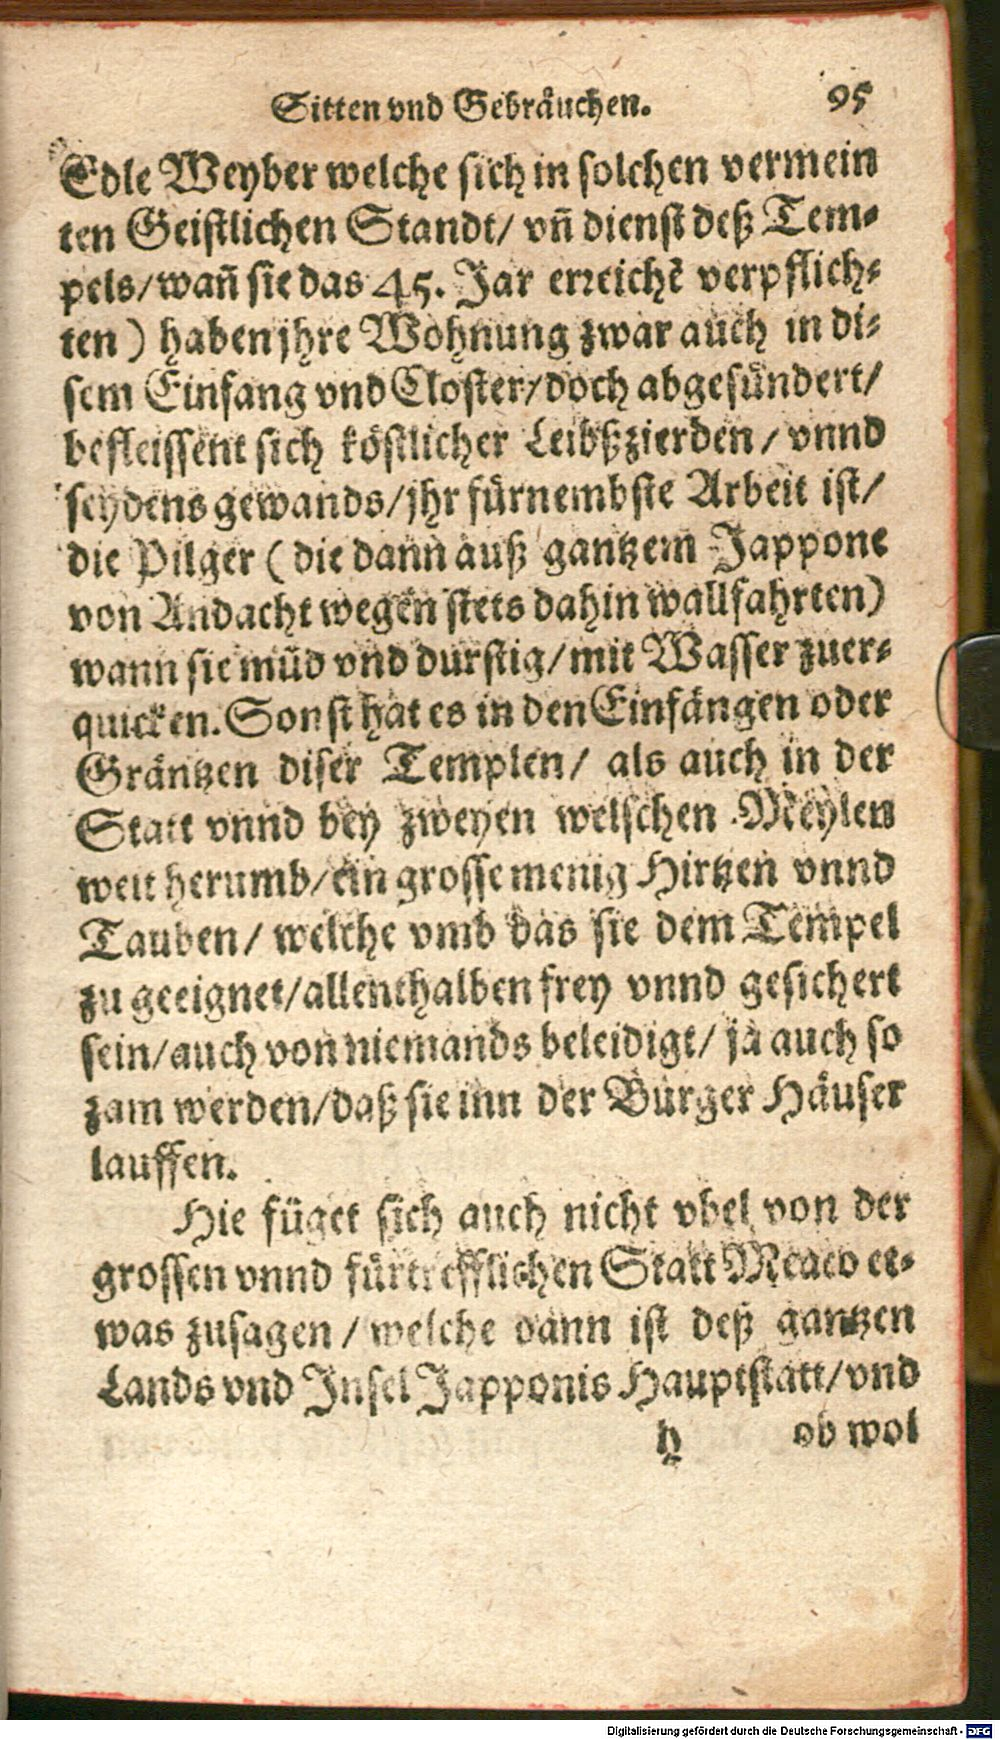 Sitten vnd Gebräuchen. 95
Edle Weyber welche sich in solchen vermein
ten Geistlichen Standt/ vn̄ dienst deß Tem-
pels/wan̄ sie das 45. Jar erreichē verpflich-
ten ) haben jhre Wohnung zwar auch in di-
sem Einfang vnd Closter/doch abgesündert/
befleissent sich köstlicher Leibßzierden / vnnd
seydens gewands/jhr fürnembste Arbeit ist/
die Pilger ( die dann auß gantzem Jappone
von Andacht wegen stets dahin wallfahrten)
wann sie müd vnd durstig/mit Wasser zuer-
quicken. Sonst hat es in den Einfängen oder
Gräntzen diser Templen/ als auch in der
Statt vnnd bey zweyen welschen Meylen
weit herumb/ein grosse menig Hirtzen vnnd
Tauben/ welche vmb das sie dem Tempel
zu geeignet/allenthalben frey vnnd gesichert
sein/auch von niemands beleidigt/ ja auch so
zam werden/daß sie inn der Burger Häuser
lauffen.
Hie füget sich auch nicht vbel von der
grossen vnnd fürtrefflichen Statt Meaco et-
was zusagen / welche dann ist deß gantzen
Lands vnd Insel Japponis Hauptstatt/vnd
h ob wol
Digitalisierung gefördert durch die Deutsche Forschungsgemeinschaft - DFG